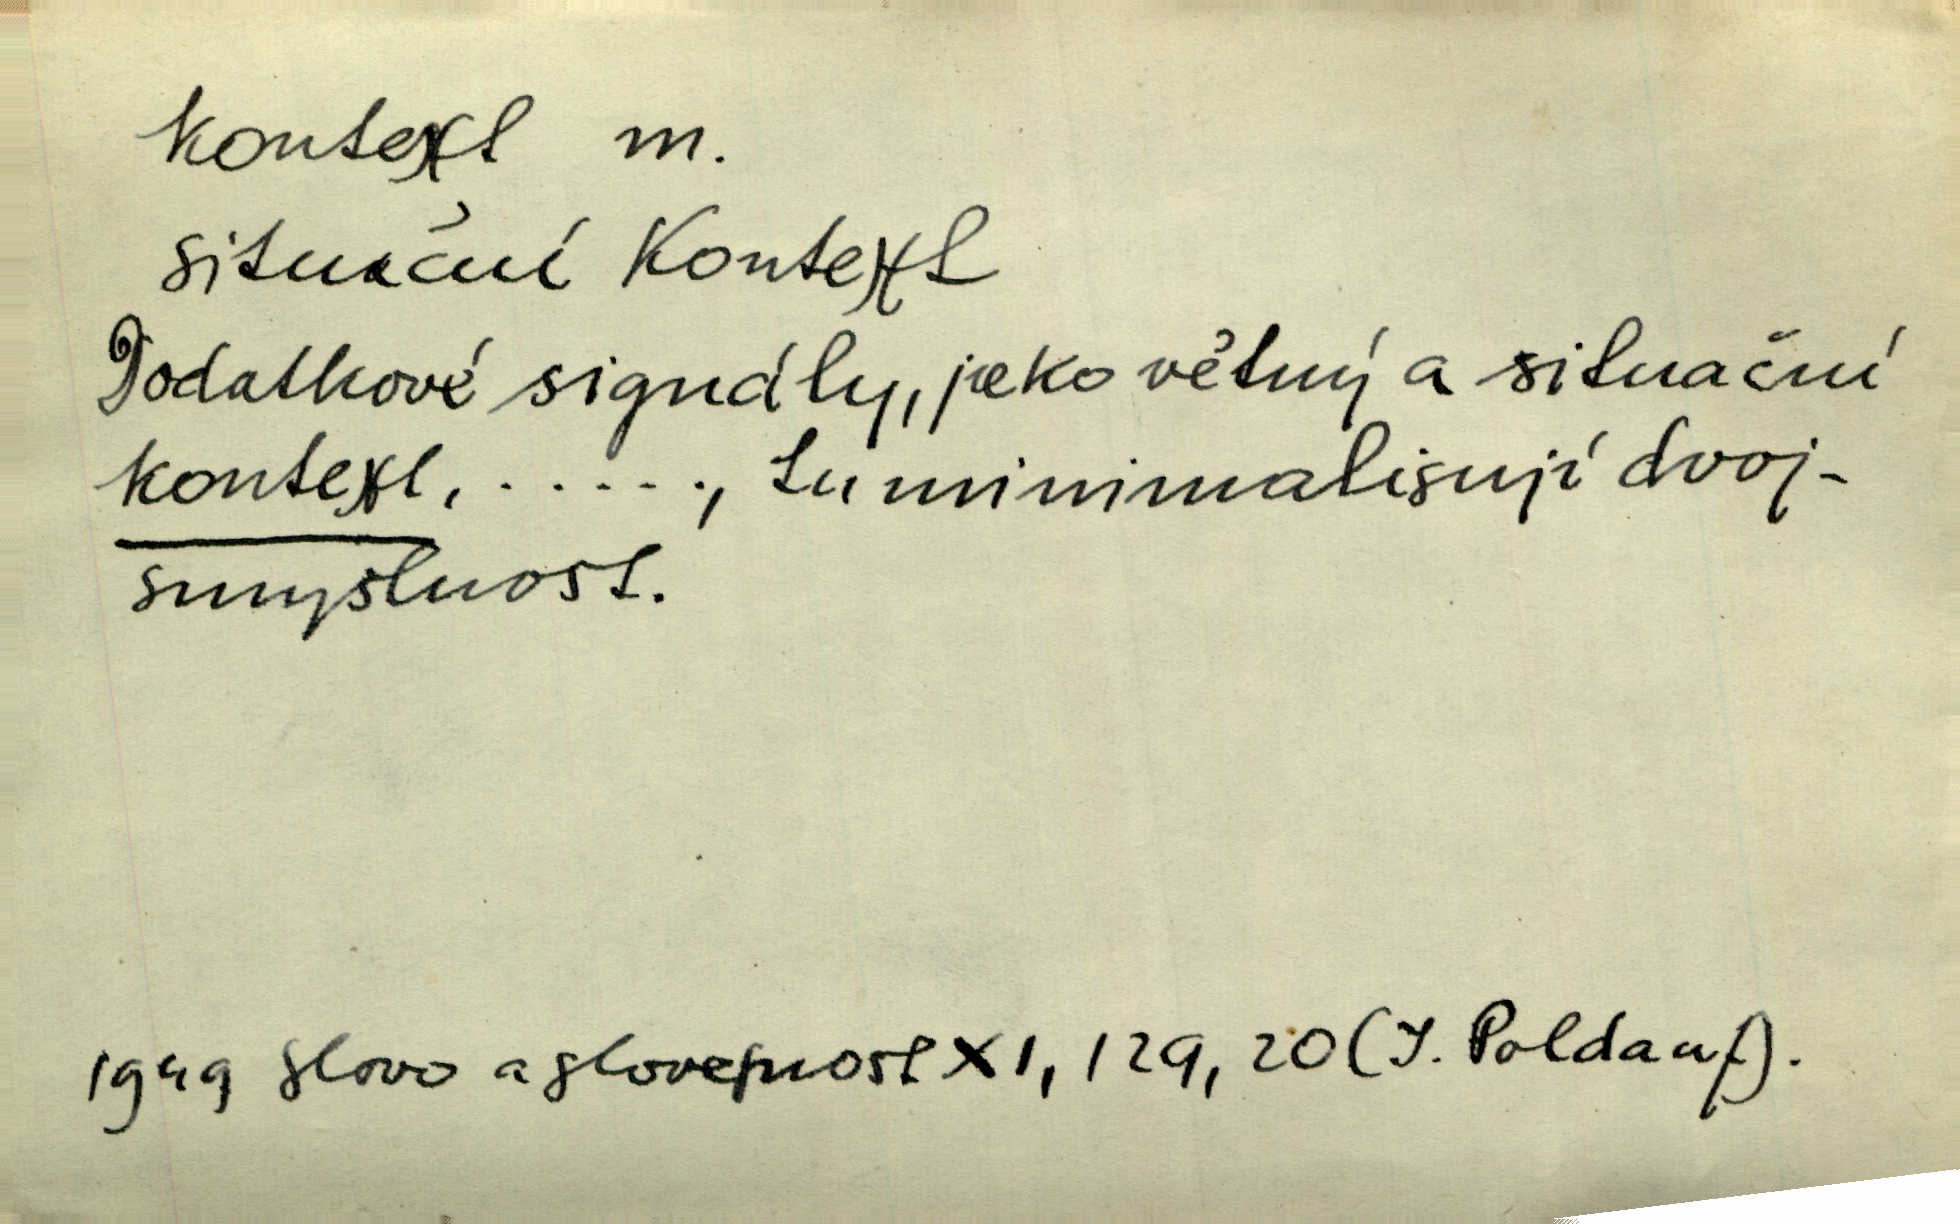 kontext m.
situační kontext
Dodatkové signály, jako větný a situační
kontext, . . . . ., tu minimalisují dvoj-
smyslnost.
1949 Slovo a slovesnost XI, 129, 20 (I. Poldauf).